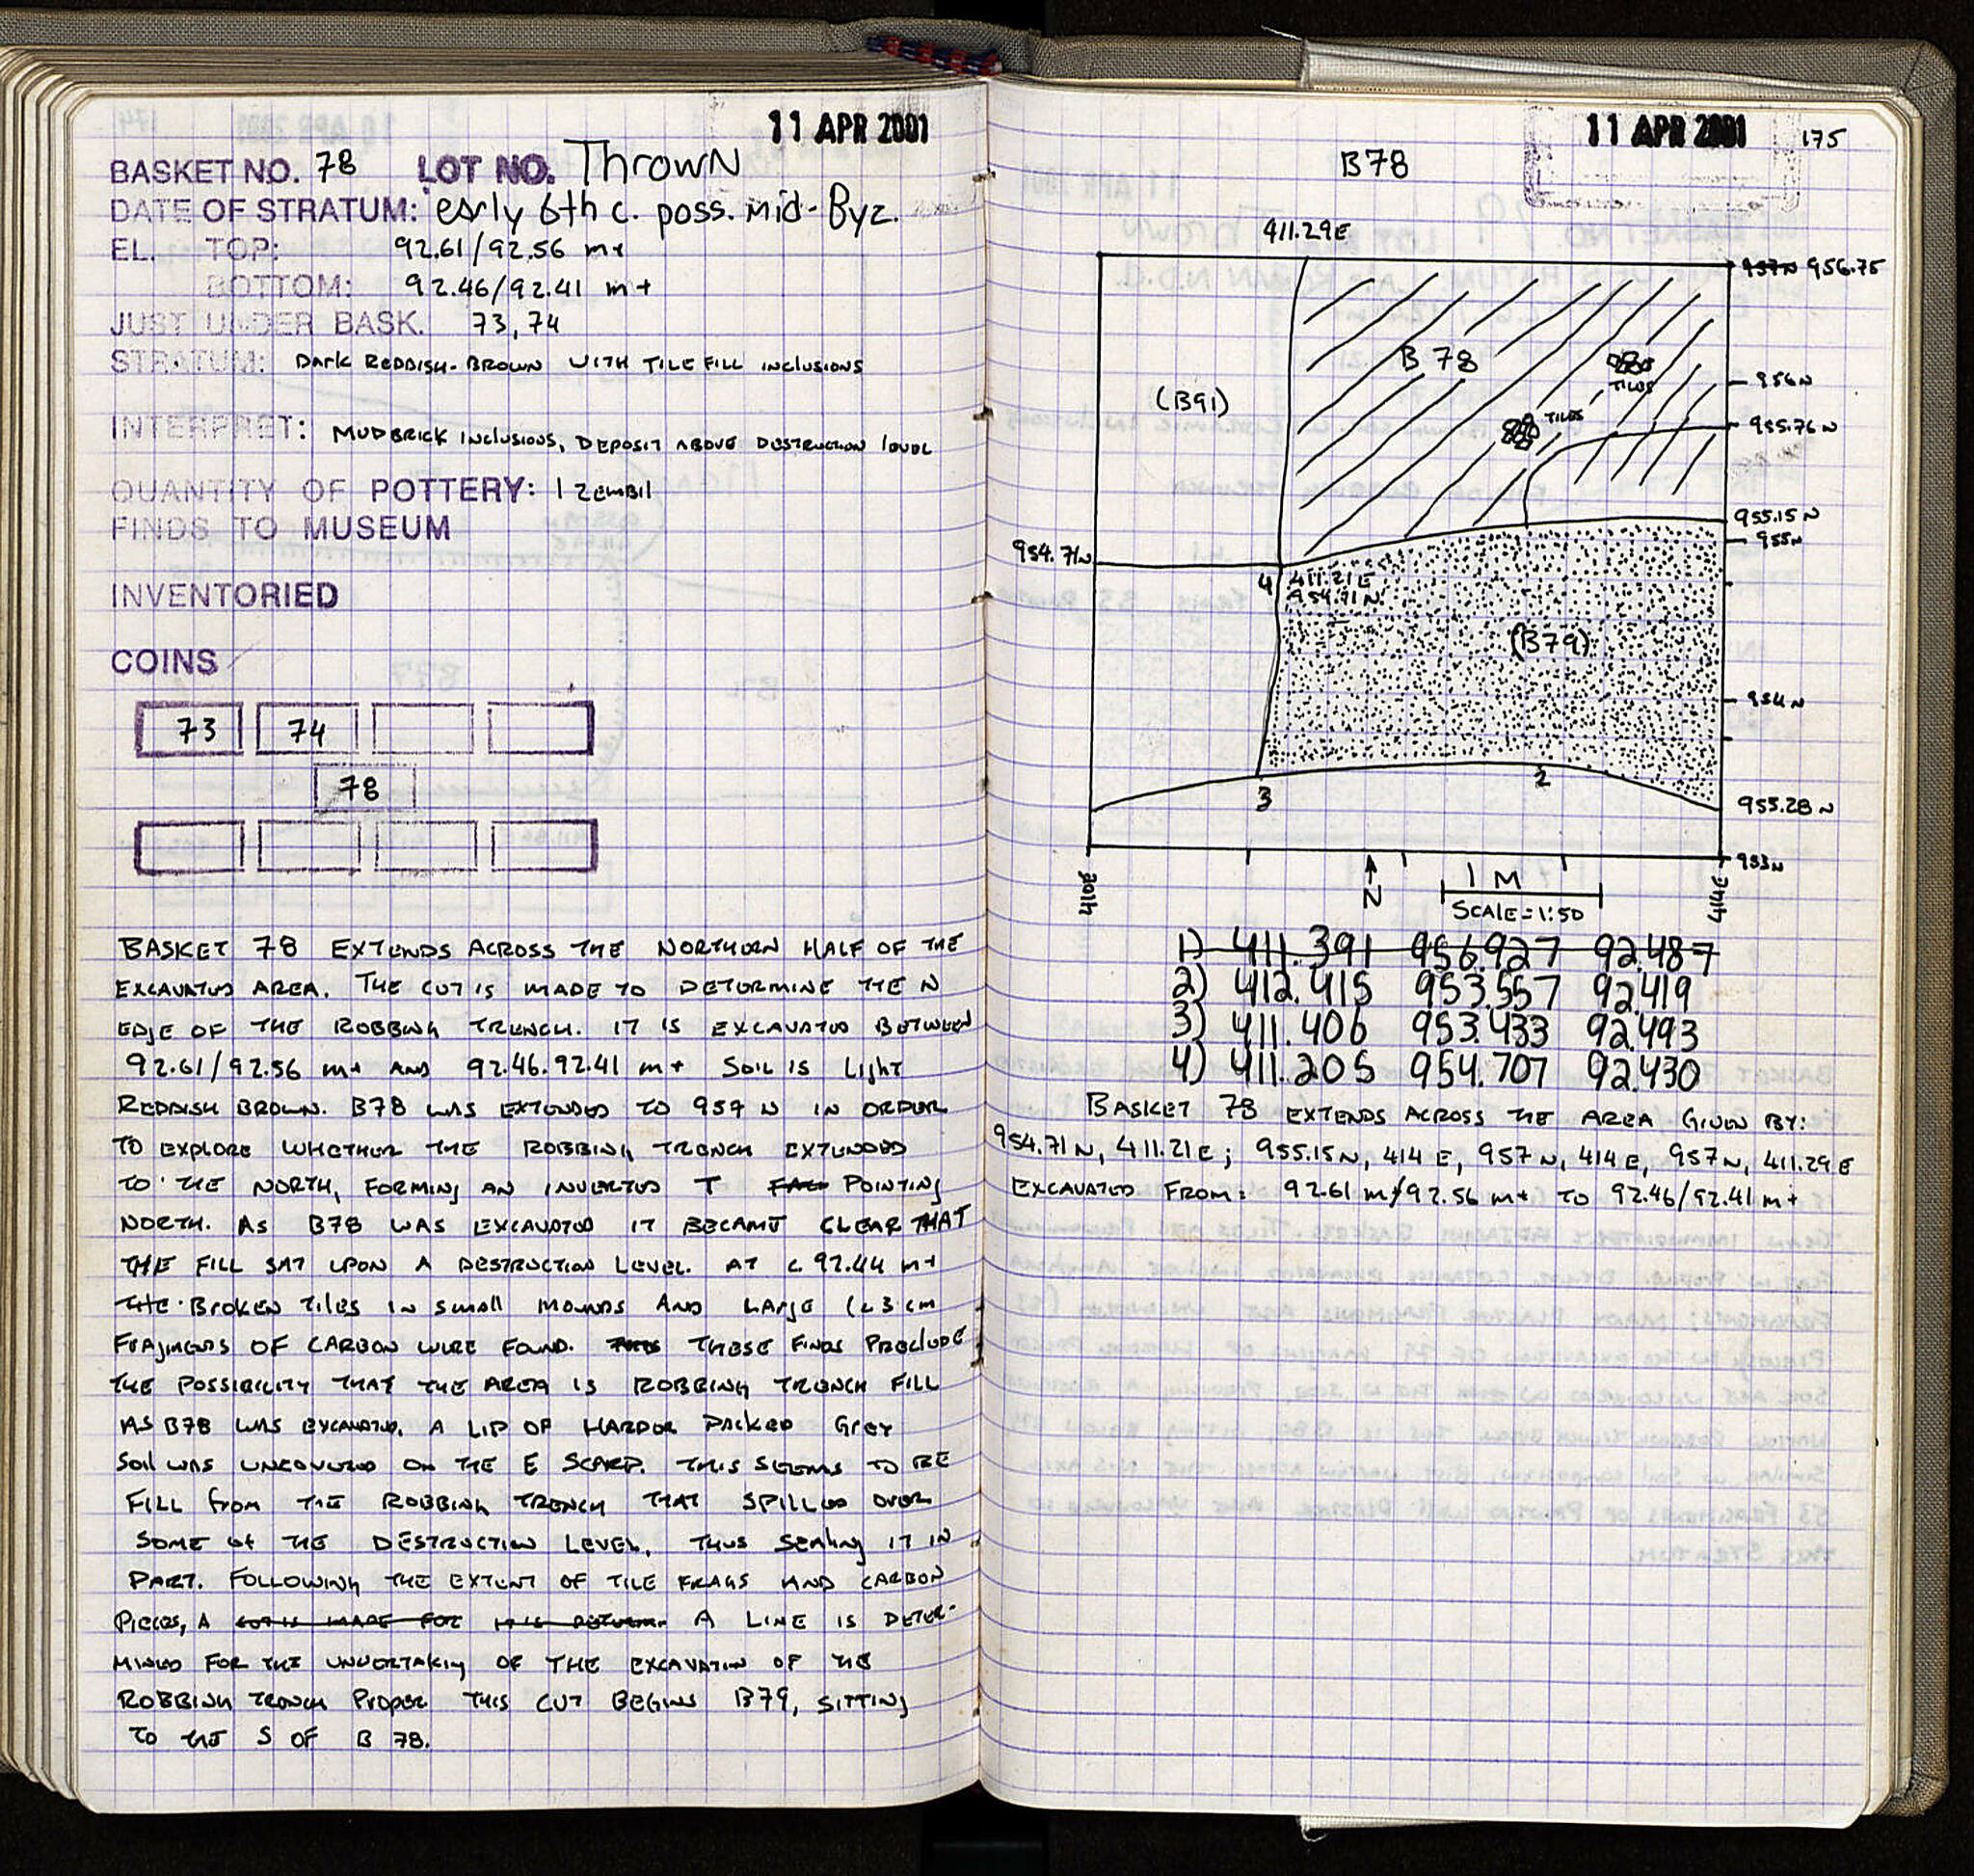 11 APR 2001
BASKET NO. 78 LOT NO. Thrown
DATE OF STRATUM: early 6th c. poss. Mid-Byz.
EL. TOP: 92.61/92.56 m+
BOTTOM: 92.46/92.41 m+
JUST UNDER BASK. 73, 74
STRATUM: Dark Reddish-Brown with tile fill inclusions
INTERPRET: Mudbrick inclusions, deposit above destruction level
QUANTITY OF POTTERY: 1 zembil
FINDS TO MUSEUM
INVENTORIED
COINS
73 74
78
Basket 78 extends across the northern half of the
excavated area. The cut is made to determine the N
edge of the robbing trench. It is excavated between
92.61/92.56 m+ and 92.46.92.41 m+ Soil is light
reddish brown. B78 was extended to 957 N in order
to explore whether the robbing trench extended
to the north, forming an inverted T pointing
north. As B78 was excavated it became clear that
the fill sat upon a destruction level. At c. 92.44 m+
the broken tiles in small mounds and large (c 3 cm
fragments of carbon were found. these finds preclude
the possibility that the area is robbing trench fill
As B78 was excavated, a lip of harder packed grey
soil was uncovered on the E scarp. This seems to be
fill from the robbing trench that spilled over
some of the destruction level, thus sealing it in
part. Following the extent of tile frags and carbon
pieces, a cut is made for A line is deter-
mined for the undertaking of the excavation of the
robbing trench proper this cut begins B79, sitting
to the S of B 78.
11 APR 2001 175
B78
411.29E
957N 956.75
B 78
TILES
956N
(B91)
TILES
955.76 N
955.15 N
954.71N
955N
4 411.21 E
954.71 N
(B79)
954N
3 2
955.28 N
953N
N
1 M
SCALE = 1:50
414E
1) 411.391 956.927 92.487
2) 412.415 953.557 92.419
3) 411.406 953.433 92.493
4) 411.205 954.707 92.430
Basket 78 extends across the area given by:
954.71 N, 411.21 E; 955.15 N, 414 E, 957 N, 414 E, 957 N, 411.29 E
Excavated from: 92.61 m/92.56 m+ to 92.46/92.41 m+